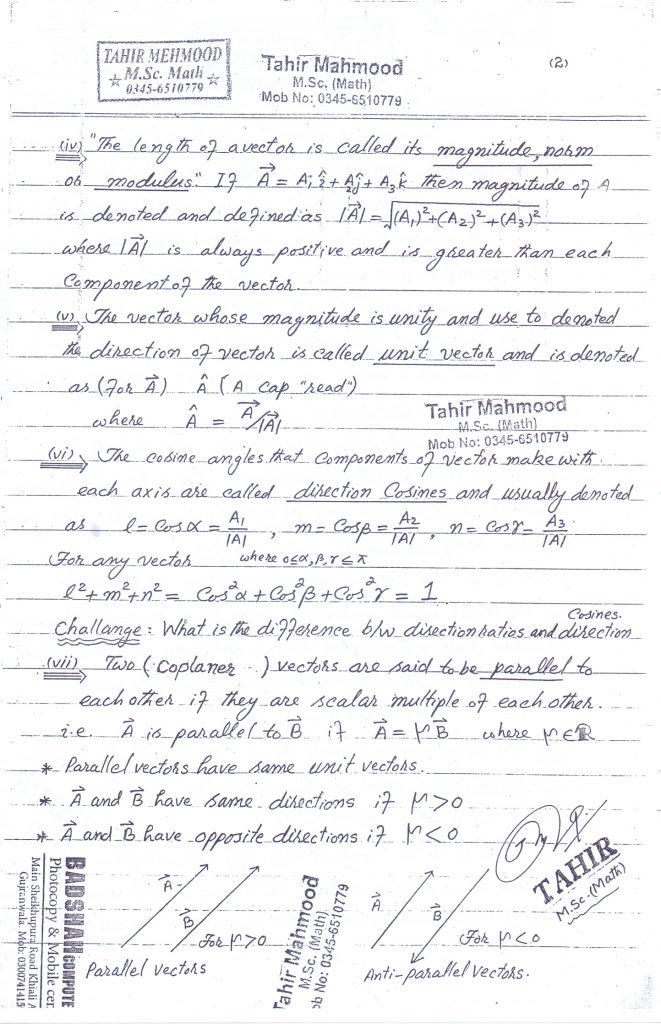 TAHIR MEHMOOD
M.Sc. Math
0345-6510779
Tahir Mahmood
M.Sc. (Math)
Mob No: 0345-6510779
(2)
(iv) "The length of a vector is called its magnitude, norm
or modulus." If A⃗ = A₁î + A₂ĵ + A₃k̂ then magnitude of A
is denoted and defined as |A⃗| = √((A₁)²+(A₂)²+(A₃)²)
where |A⃗| is always positive and is greater than each
Component of the vector.
(v) The vector whose magnitude is unity and use to denoted
the direction of vector is called unit vector and is denoted
as (for A⃗) Â (A cap "read")
where Â = A⃗/|A⃗|
Tahir Mahmood
M.Sc. (Math)
Mob No: 0345-6510779
(vi) The cosine angles that Components of vector make with
each axis are called direction Cosines and usually denoted
as l = Cos α = A₁/|A| , m = Cos β = A₂/|A| , n = Cos γ = A₃/|A|
For any vector where 0≤α,β,γ≤π
l²+m²+n² = Cos²α + Cos²β + Cos²γ = 1
Challange: What is the difference b/w direction ratios and direction Cosines.
(vii) Two (Coplaner) vectors are said to be parallel to
each other if they are scalar multiple of each other.
i.e. A⃗ is parallel to B⃗ if A⃗ = μB⃗ where μ∈ℝ
* Parallel vectors have same unit vectors.
* A⃗ and B⃗ have same directions if μ>0
* A⃗ and B⃗ have opposite directions if μ<0
TAHIR
M.Sc.(Math)
BADSHAH COMPUTE
Photocopy & Mobile cer
Main Sheikhupura Road Khiali A
Gujranwala. Mob: 0300741415
A⃗
B⃗
For μ>0
Parallel vectors
Tahir Mahmood
M.Sc. (Math)
ob No: 0345-6510779
A⃗
B⃗
For μ<0
Anti-parallel vectors.